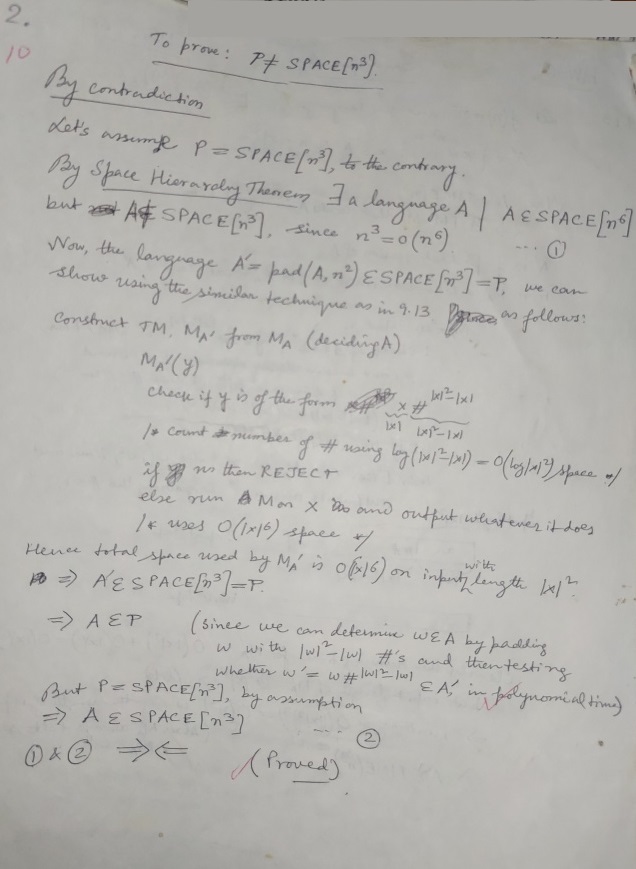 2.
10
To prove: P ≠ SPACE[n³].
By contradiction
Let's assume P = SPACE[n³], to the contrary.
By Space Hierarchy Theorem ∃ a language A | A ∈ SPACE[n⁶]
but A ∉ SPACE[n³], since n³ = o(n⁶) ... ①
Now, the language A' = pad(A, n²) ∈ SPACE[n³] = P, we can
show using the similar technique as in 9.13 as follows:
Construct TM, M_A' from M_A (deciding A)
M_A'(y)
check if y is of the form x #^{|x|²-|x|}
|x| |x|²-|x|
/* count number of # using log(|x|²-|x|) = O(log|x|²) space */
if no then REJECT
else run M on x and output whatever it does
/* uses O(|x|⁶) space */
Hence total space used by M_A' is O(|x|⁶) on input with length |x|².
⇒ A' ∈ SPACE[n³] = P.
⇒ A ∈ P (since we can determine w ∈ A by padding
w with |w|²-|w| #'s and then testing
whether w' = w #^{|w|²-|w|} ∈ A', in polynomial time)
But P = SPACE[n³], by assumption
⇒ A ∈ SPACE[n³] ... ②
① & ② ⇒⇐ (Proved)